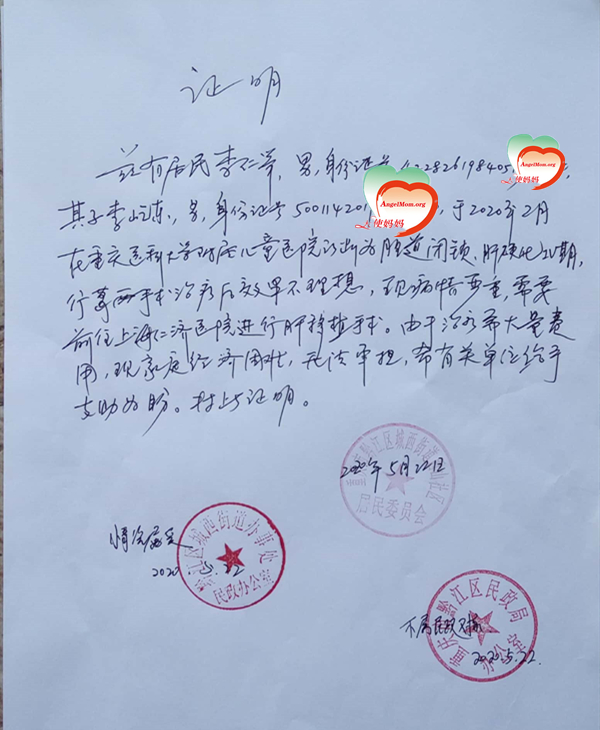 证明
兹有居民李仁 男,身份证号 422826198405
AngelMom.org
天使妈妈
其子李 东,男,身份证号 5001142019
AngelMom.org
天使妈妈
,于2020年2月
在重庆医科大学附属儿童医院诊断为胆道闭锁、肝硬化 期,
行葛西手术治疗后效果不理想,现病情严重,需要
前往上海仁济医院进行肝移植手术。由于治疗需大量费
用,现家庭经济困难,无法承担,希有关单位给予
支助为盼。特此证明。
黔江区城西街道 社区
居民委员会
2020年5月22日
情况属实
2020.5.22
黔江区城西街道办事处
民政办公室
重庆黔江区民政局
办公室
不属民政对象
2020.5.22.